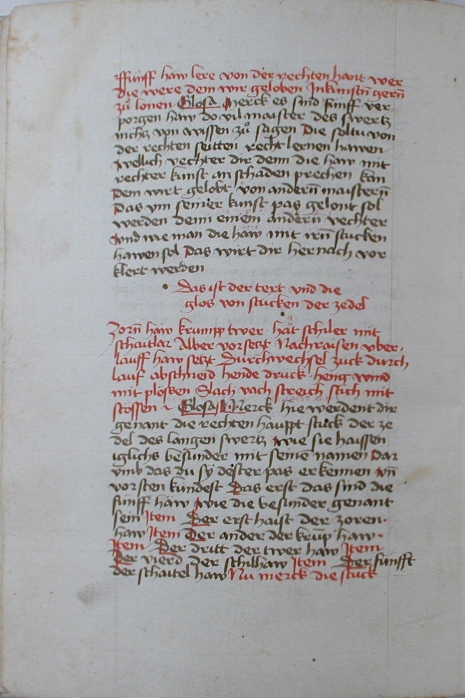 Fünff haw lere von der rechten hant wer
die were dem wir geloben In kunstn̄ gern̄
zů lonen Glosa Merck es sind fünff ver
porgen haw do vil maister des swertz
nichtz von wissen zů sagen Die soltu von
der rechten seitten recht lernen hawen
welich vechter dir denn die haw mit
rechter kunst an schaden prechen kan
Dem wirt gelobt von andern̄ maistern̄
Das ym seiner kunst pas gelont sol
werden denn einem andern̄ vechter
Und wie man die haw mit irn̄ stucken
hawen sol Das wirt dir hernach vor
klert werden
Das ist der text vnd die
glos von stucken der zedel
Zorn̄ haw krump twer hät schiler mit
schaitlar Alber vorsetzt Nachraisen vber
lauff haw setzt Durchwechsel zuck durch
lauf abschneid hende druck heng wind
mit plössen Slach vach streich stich mit
stossen Glosa Merck hie werdent dir
genant die rechten haupt stuck der ze
del des langen swertz wie sie haissen
iglichs besunder mit seinē namen Dar
vmb das du sy dester pas erkennen vn̄
vorsten kundest Das erst das sind die
fünff haw wie die besunder genant
sein Item Der erst haist der zoren
haw Item Der ander der krup haw
Item Der dritt der twer haw Item
Der vierd der schilhaw Item Der fünfft
der schaitel haw Nu merck die stuck